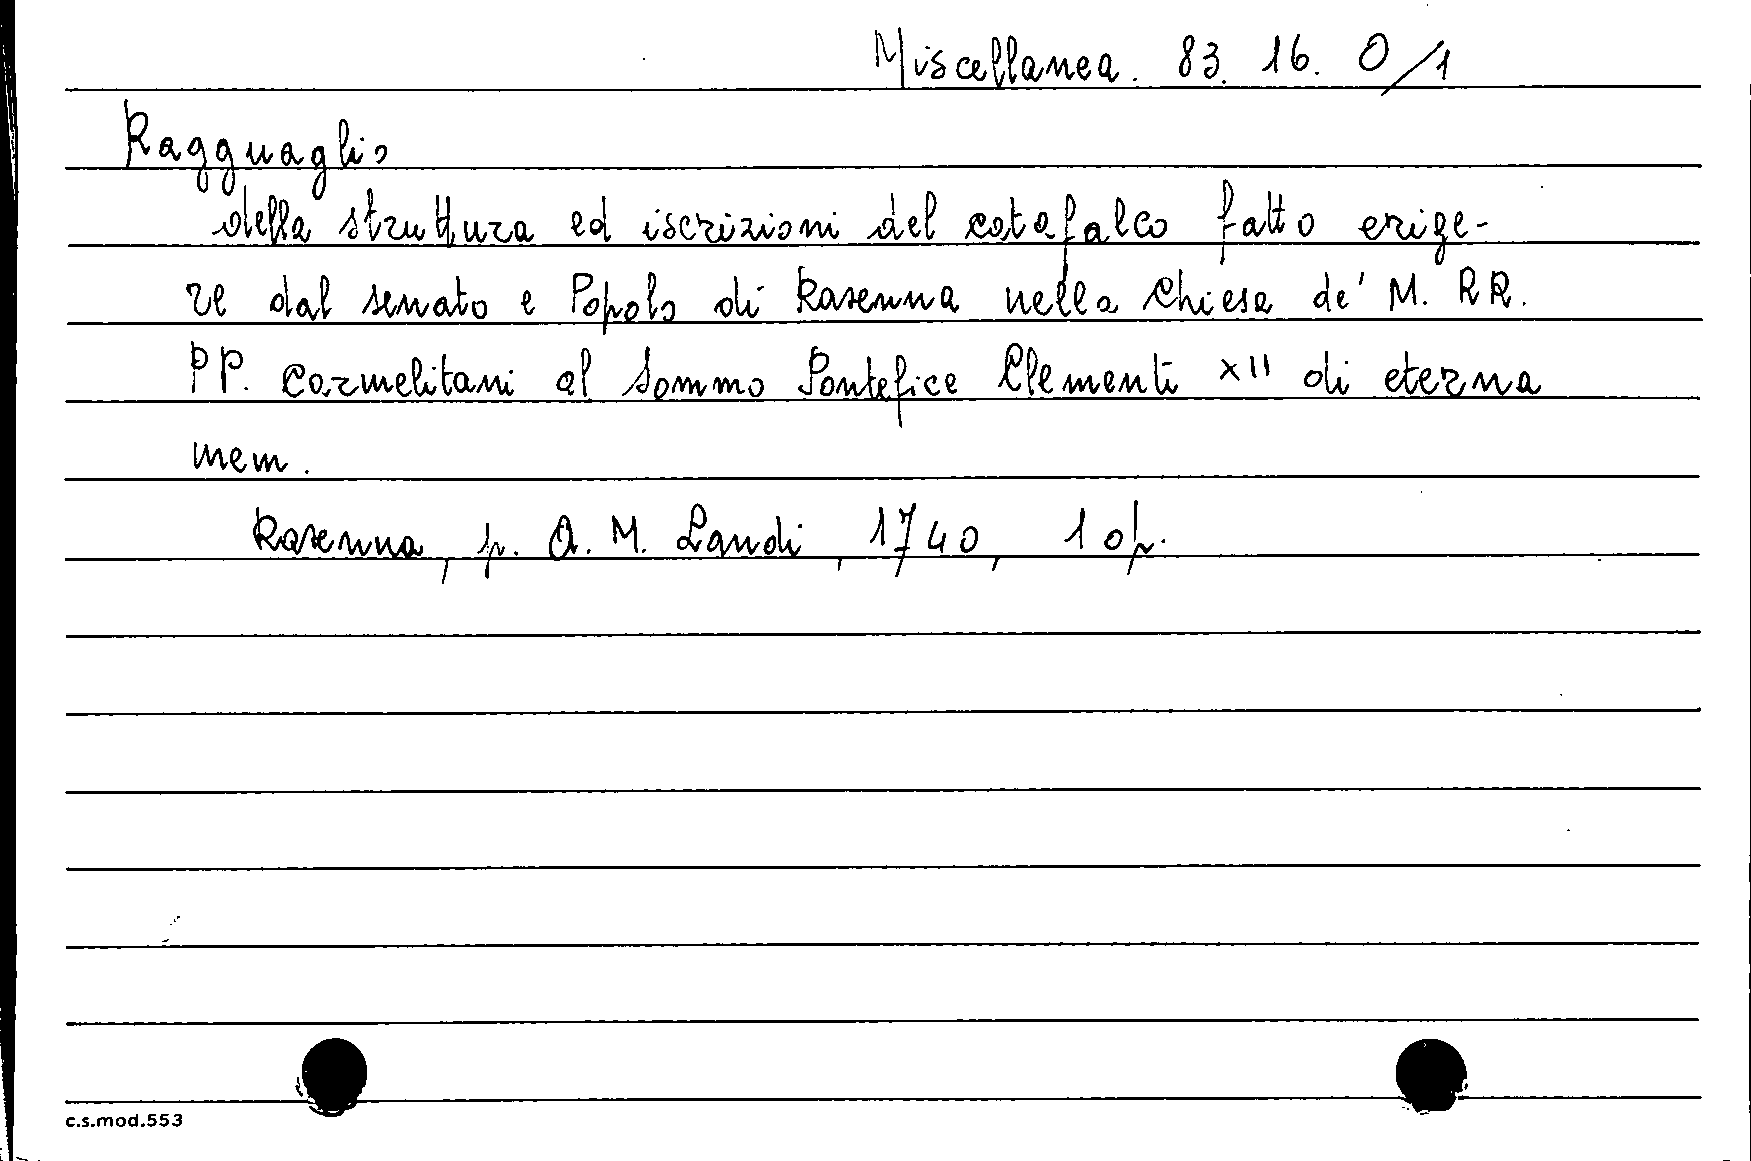 Miscellanea. 83. 16. O/1
Ragguaglio
della struttura ed iscrizioni del catafalco fatto erige-
re dal senato e Popolo di Ravenna nella Chiesa de' M. RR.
PP. Carmelitani al Sommo Pontefice Clementi XII di eterna
mem.
Ravenna, p. A. M. Landi, 1740, 1 op.
c.s.mod.553